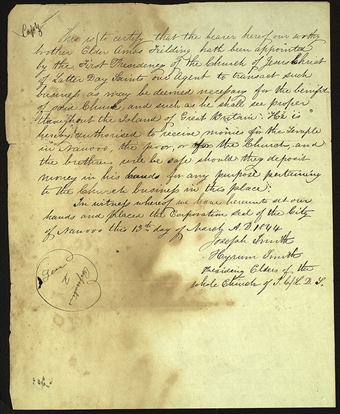 Copy
This is to certify that the bearer hereof our worthy
brother Elder Amos Fielding hath been appointed
by the First Presidency of the Church of Jesus Christ
of Latter Day Saints our Agent to transact such
business as may be deemed necessary for the benefit
of said Church, and such as he shall see proper
throughout the Island of Great Britain. He is
hereby authorised to receive monies for the Temple
in Nauvoo, the poor, or for the Church, and
the brethren will be safe should they deposit
money in his hands for any purpose pertaining
to the Church business in this place.
In witness whereof we have hereunto set our
hands and placed the Corporation Seal of the City
of Nauvoo this 13th day of March A.D. 1844.
Joseph Smith
Hyrum Smith
Presiding Elders of the
whole Church of J. C. of L. D. S.
Seal
of
Corporation